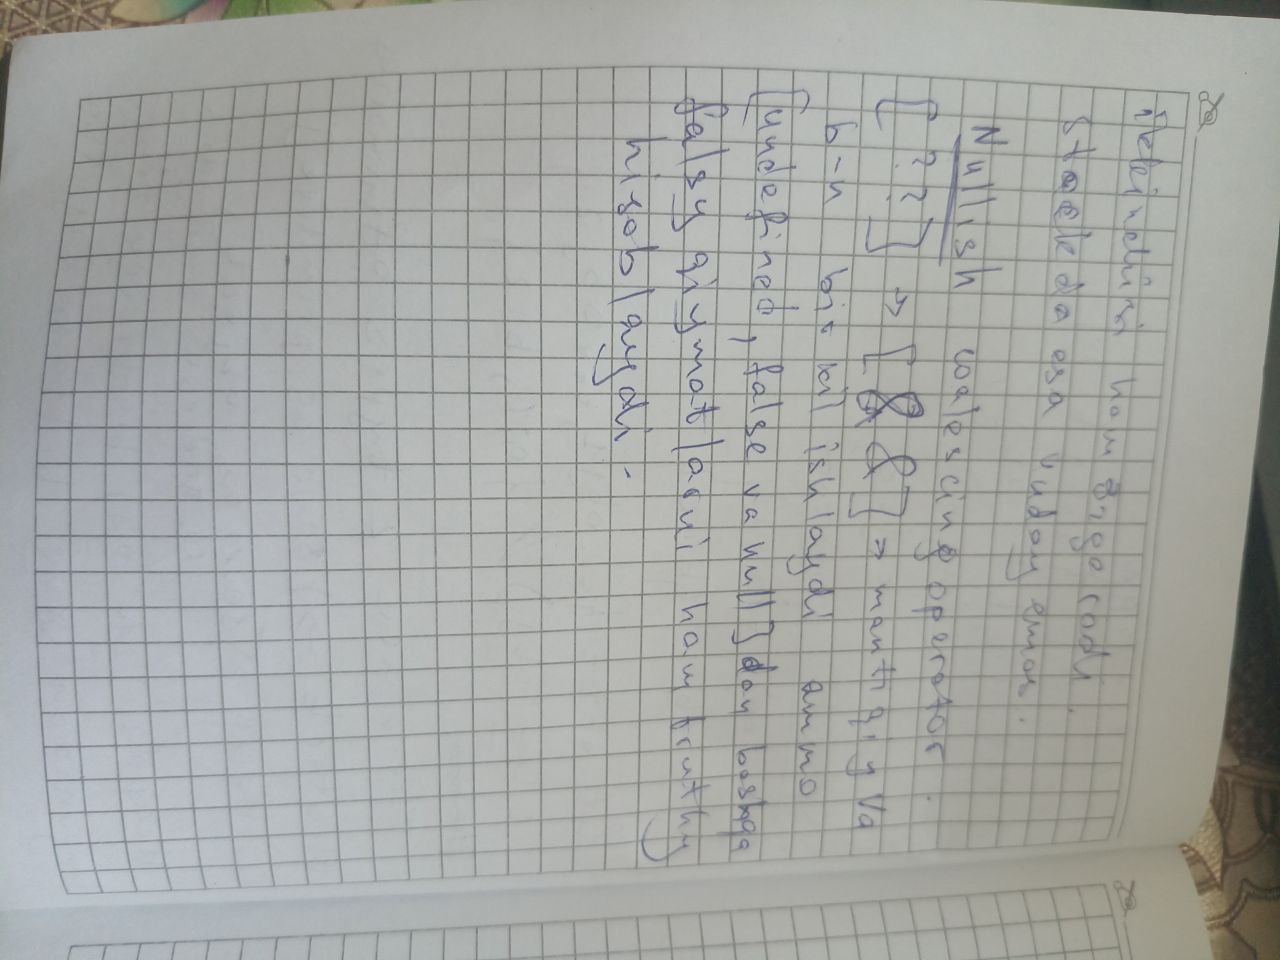 ham o'zgaradi.
stackda esa unday emas.
Nullish coalescing operator.
[??] → [&&] → mantiqiy va
b-n bir xil ishlaydi ammo
[undefined, false va null] dan boshqa
falsy qiymatlarni ham truthy
hisoblaydi.